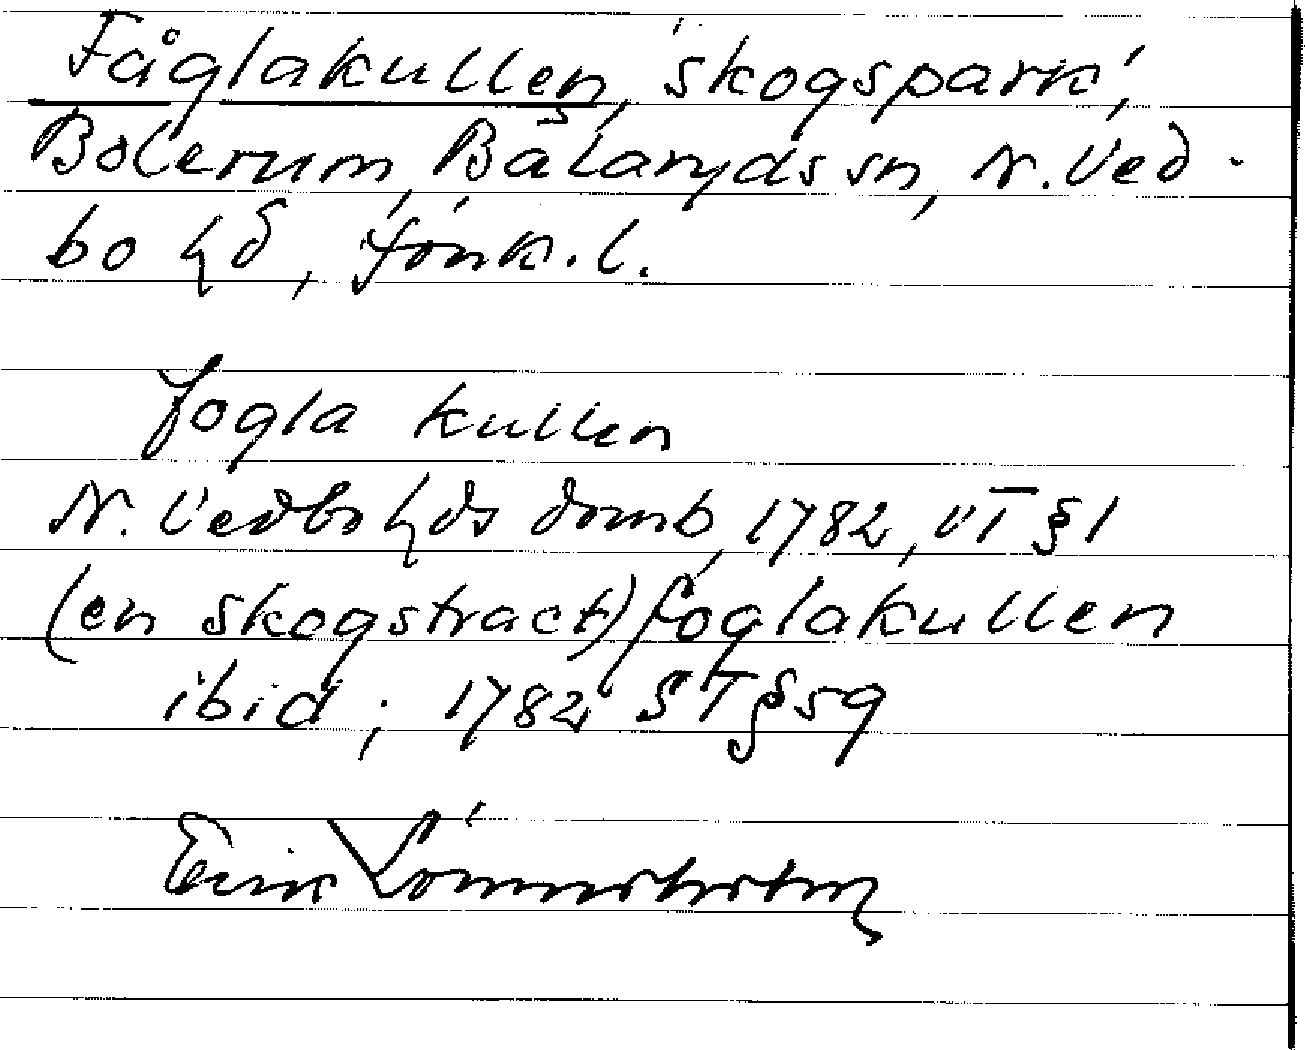 Fåglakullen, 'skogspark',
Bolerum, Bälaryds sn, N. Ved-
bo hd, Jönk. l.
fogla kullen
N. Vedbo hds domb, 1782, VT § 1
(en skogstract) foglakullen
ibid; 1782 ST § 59
Erik Lönnerholm